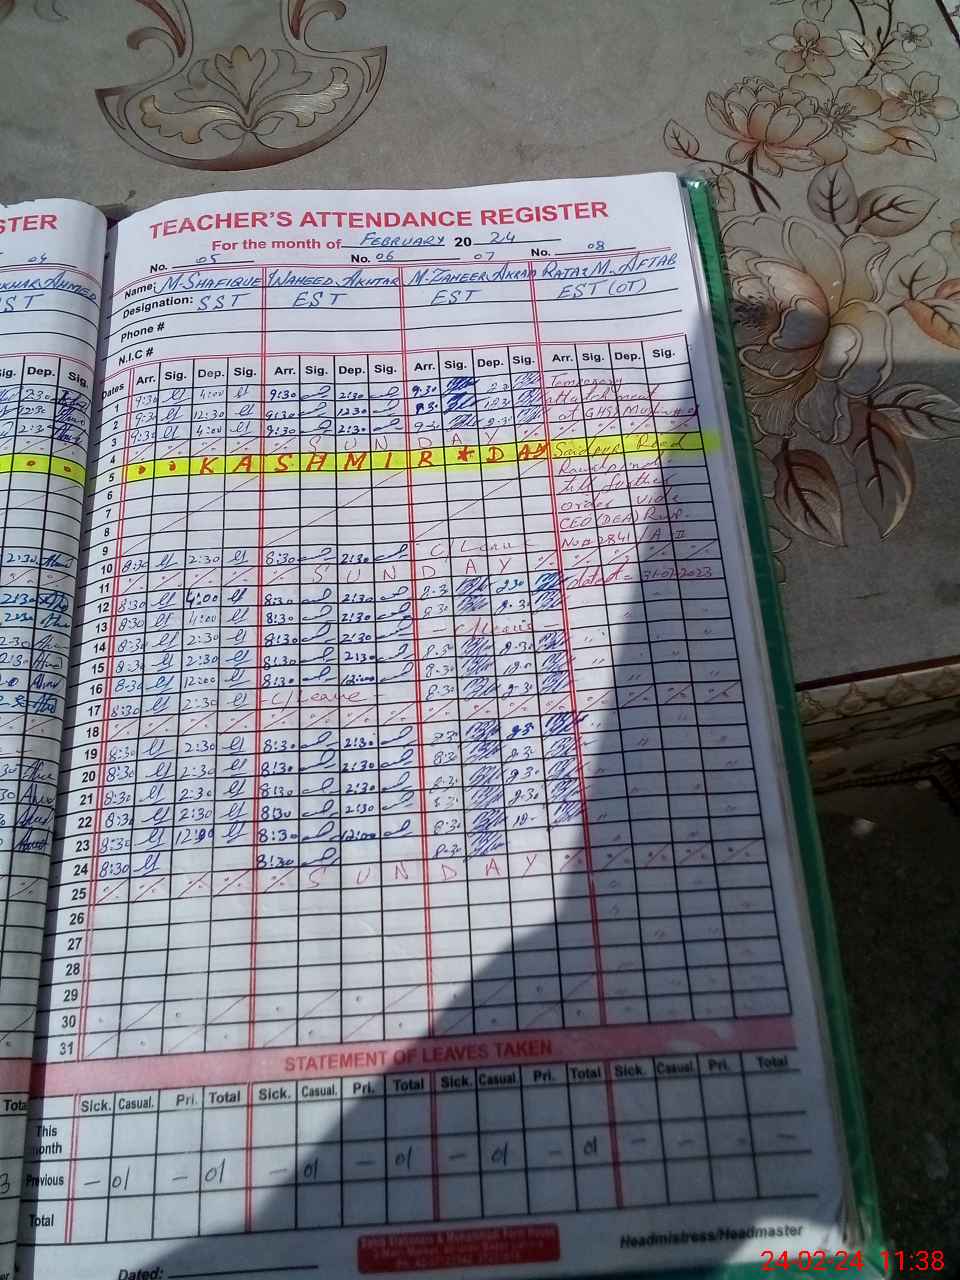 STER
TEACHER'S ATTENDANCE REGISTER
For the month of FEBRUARY 2024
04 No. 05 No. 06 07 No. 08
AHMED Name: M-SHAFIQUE NAHEED AKHTAR M-ZAHEER AKRAM M. AFTAB
ST Designation: SST EST EST EST (OT)
Phone #
N.I.C #
Dep. Sig. Dates Arr. Sig. Dep. Sig. Arr. Sig. Dep. Sig. Arr. Sig. Dep. Sig. Arr. Sig. Dep. Sig.
2:30 1 9:30 4:00 9:30 2:30 9:30 2:30 Temporary
12:30 2 9:30 12:30 9:30 12:30 9:30 12:30 attachment
2:30 3 9:30 4:00 9:30 2:30 9:30 2:30 at GHSS
4 S U N D A Y Saidpur Road
5 K A S H M I R * D A Y Rawalpindi
6 till further
7 order vide
8 CEO (DEA) Rwp.
9 No. 2841/A-II
2:30 10 8:30 2:30 8:30 2:30 C/Leave
11 S U N D A Y dated = 31-07-2023
2:30 12 8:30 4:00 8:30 2:30 8:30 2:30
2:30 13 8:30 4:00 8:30 2:30 8:30 2:30
2:30 14 8:30 2:30 8:30 2:30 - C/Leave -
2:30 15 8:30 2:30 8:30 2:30 8:30 2:30
16 8:30 12:00 8:30 12:00 8:30 12:00
2:30 17 8:30 2:30 C/Leave 8:30 2:30
18
19 8:30 2:30 8:30 2:30 8:30 2:30
20 8:30 2:30 8:30 2:30 8:30 2:30
21 8:30 2:30 8:30 2:30 8:30 2:30
22 8:30 2:30 8:30 2:30 8:30 2:30
23 8:30 12:00 8:30 12:00 8:30 12:00
24 8:30 8:30 8:30
25 S U N D A Y
26
27
28
29
30
31
STATEMENT OF LEAVES TAKEN
Total Sick. Casual. Pri. Total Sick. Casual. Pri. Total Sick. Casual. Pri. Total Sick. Casual. Pri. Total
This month
3 Previous - 01 - 01 - 01 - 01 - 01 - 01 - - - -
Total
Headmistress/Headmaster
Dated:
24-02-24 11:38